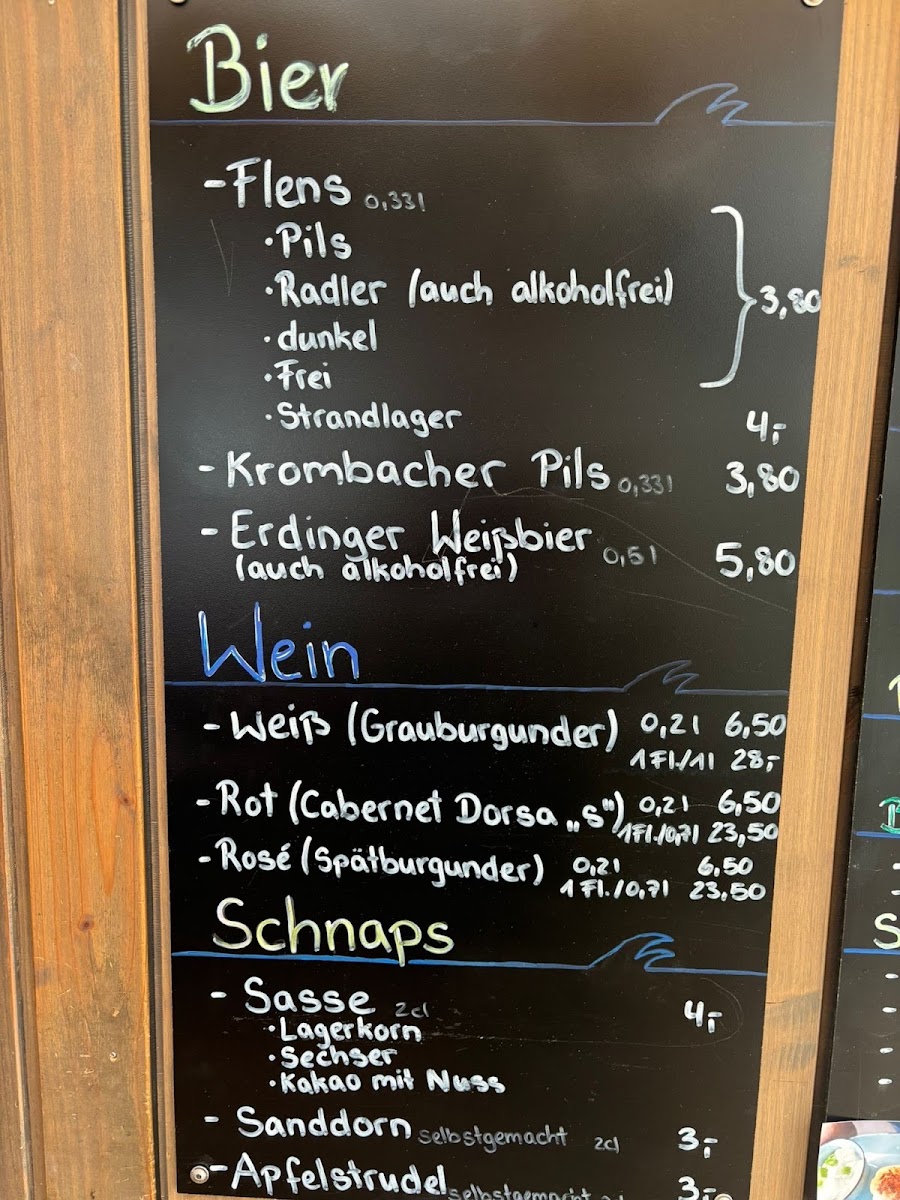 Bier
- Flens 0,33l
· Pils
· Radler (auch alkoholfrei)
· dunkel
· Frei
3,80
· Strandlager 4,-
- Krombacher Pils 0,33l 3,80
- Erdinger Weißbier 0,5l 5,80
(auch alkoholfrei)
Wein
- Weiß (Grauburgunder) 0,2l 6,50
1 Fl./1l 28,-
- Rot (Cabernet Dorsa „s") 0,2l 6,50
1 Fl./0,7l 23,50
- Rosé (Spätburgunder) 0,2l 6,50
1 Fl./0,7l 23,50
Schnaps
- Sasse 2cl 4,-
· Lagerkorn
· Sechser
· Kakao mit Nuss
- Sanddorn selbstgemacht 2cl 3,-
- Apfelstrudel selbstgemacht 3,-